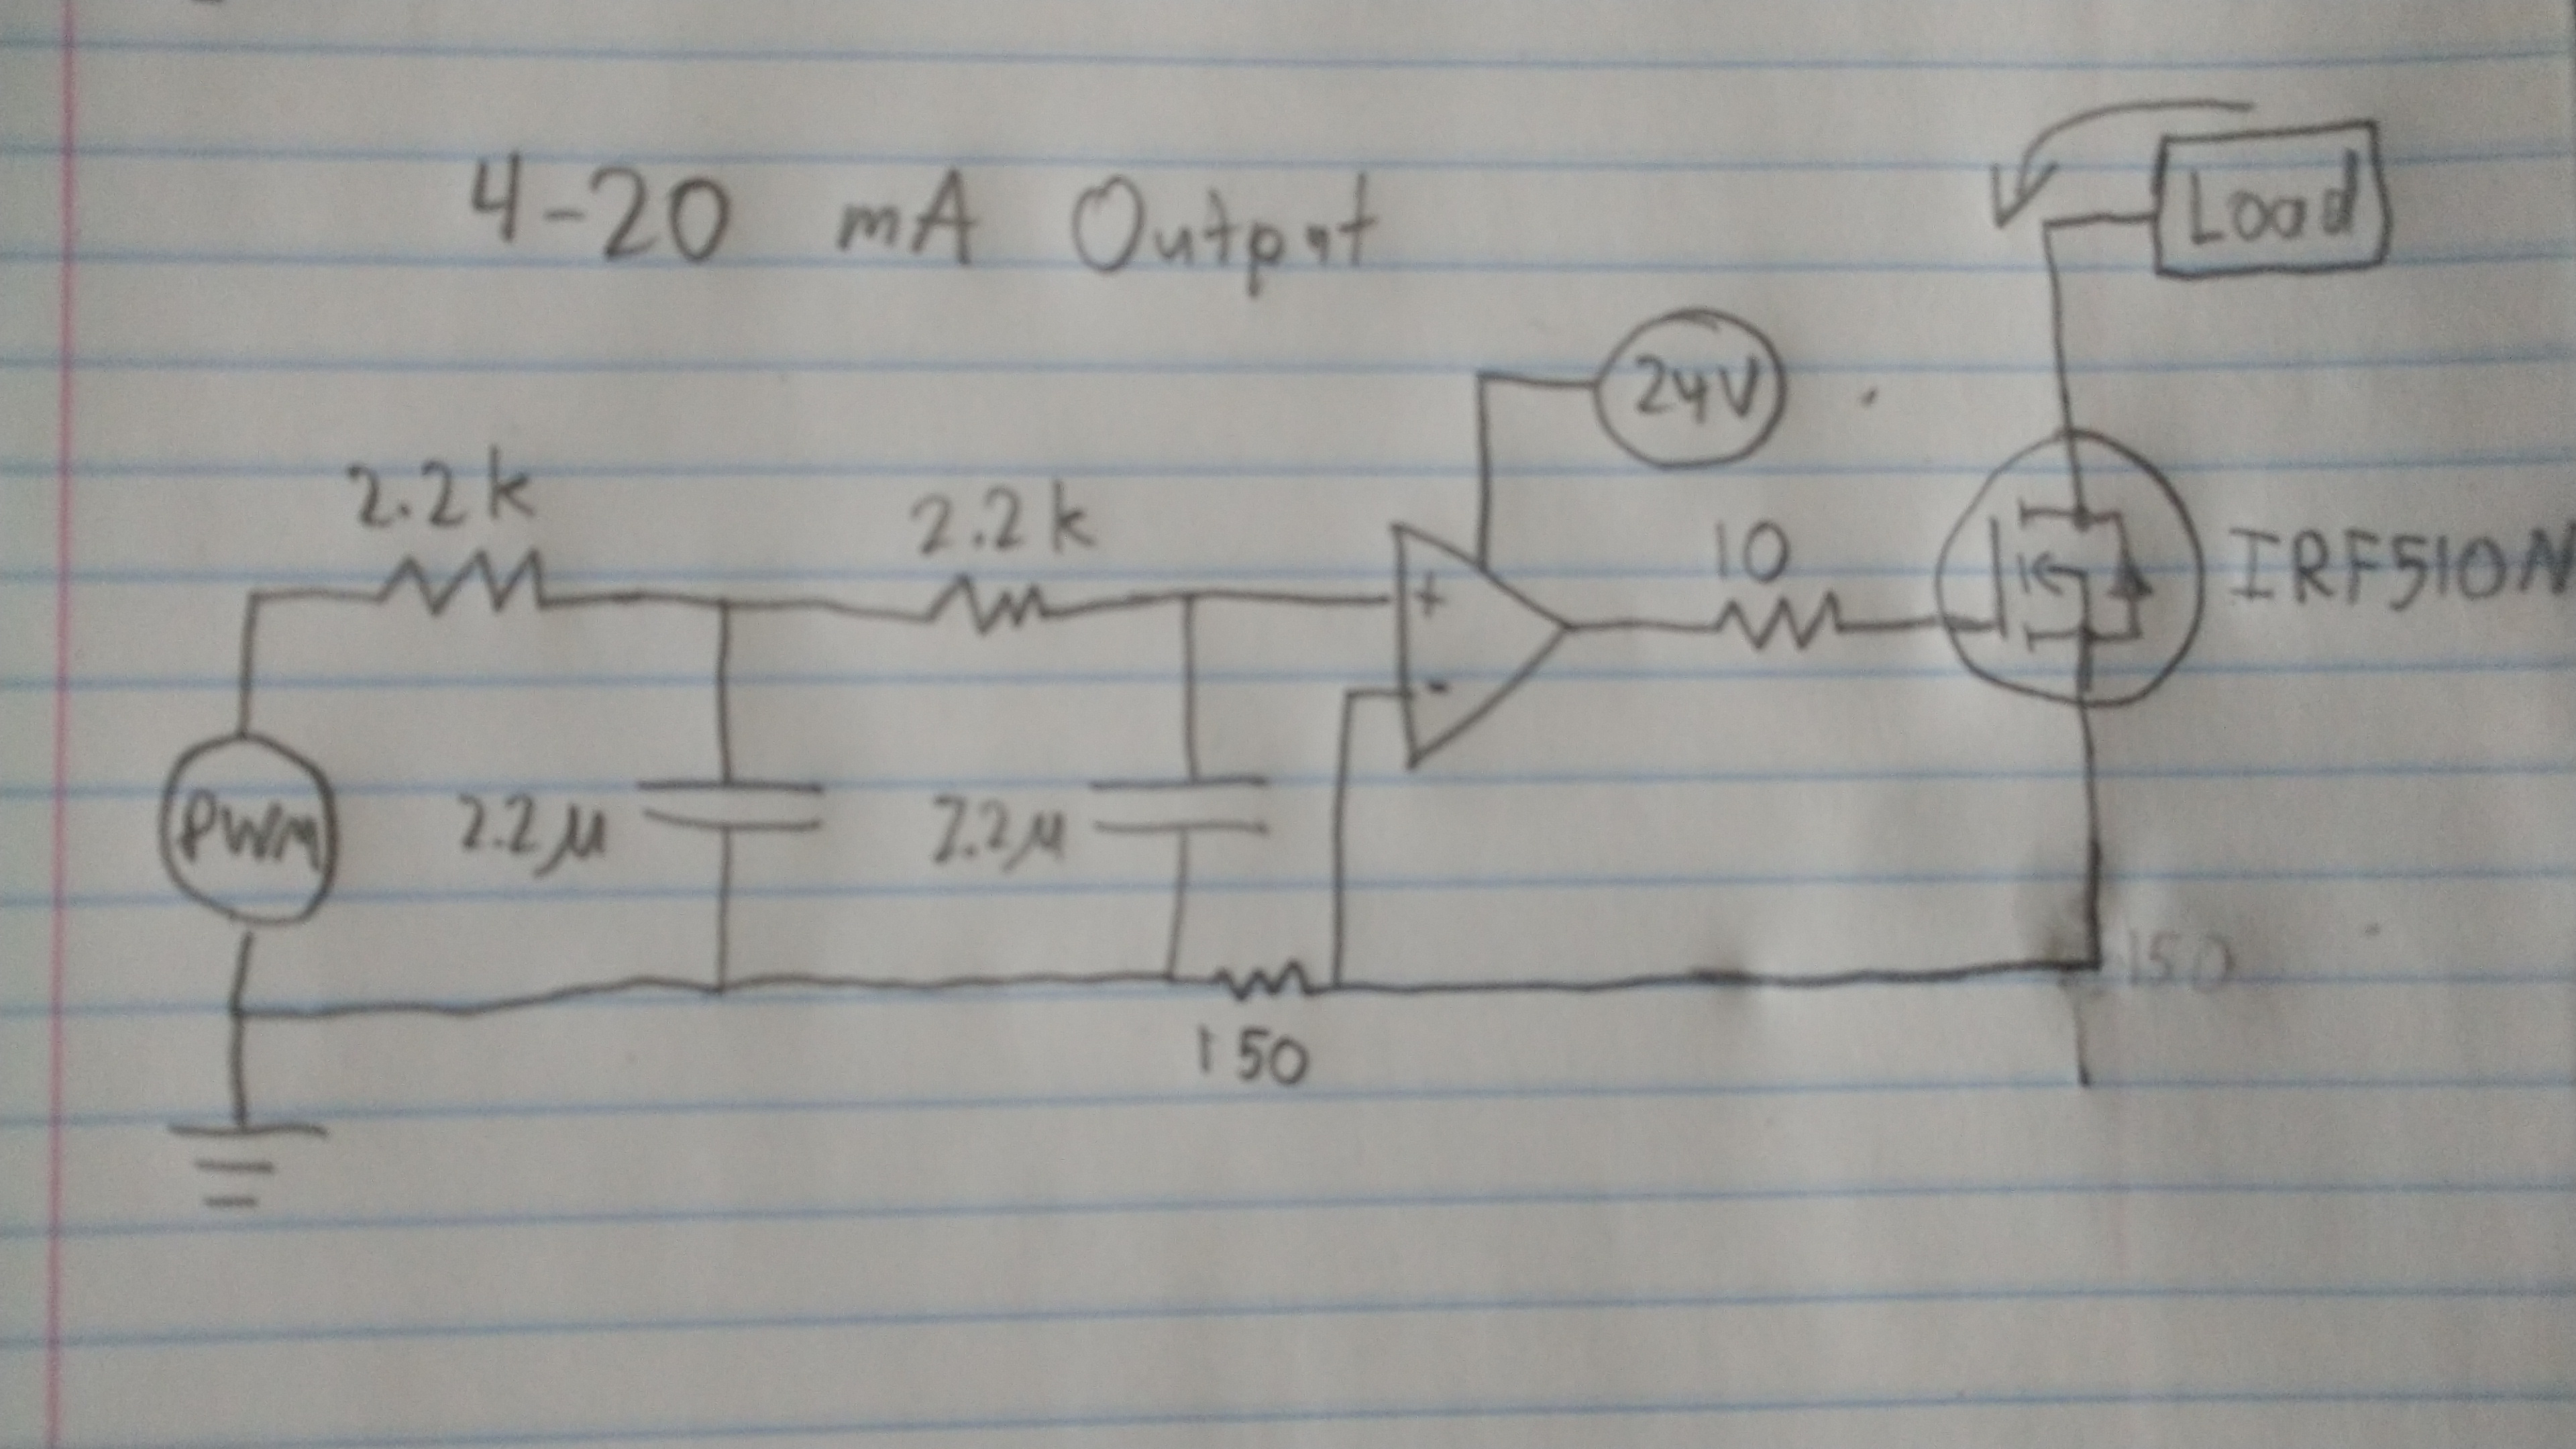 4-20 mA Output
Load
24V
2.2k
2.2k
10
IRF510N
+
-
PWM
2.2μ
2.2μ
150
150